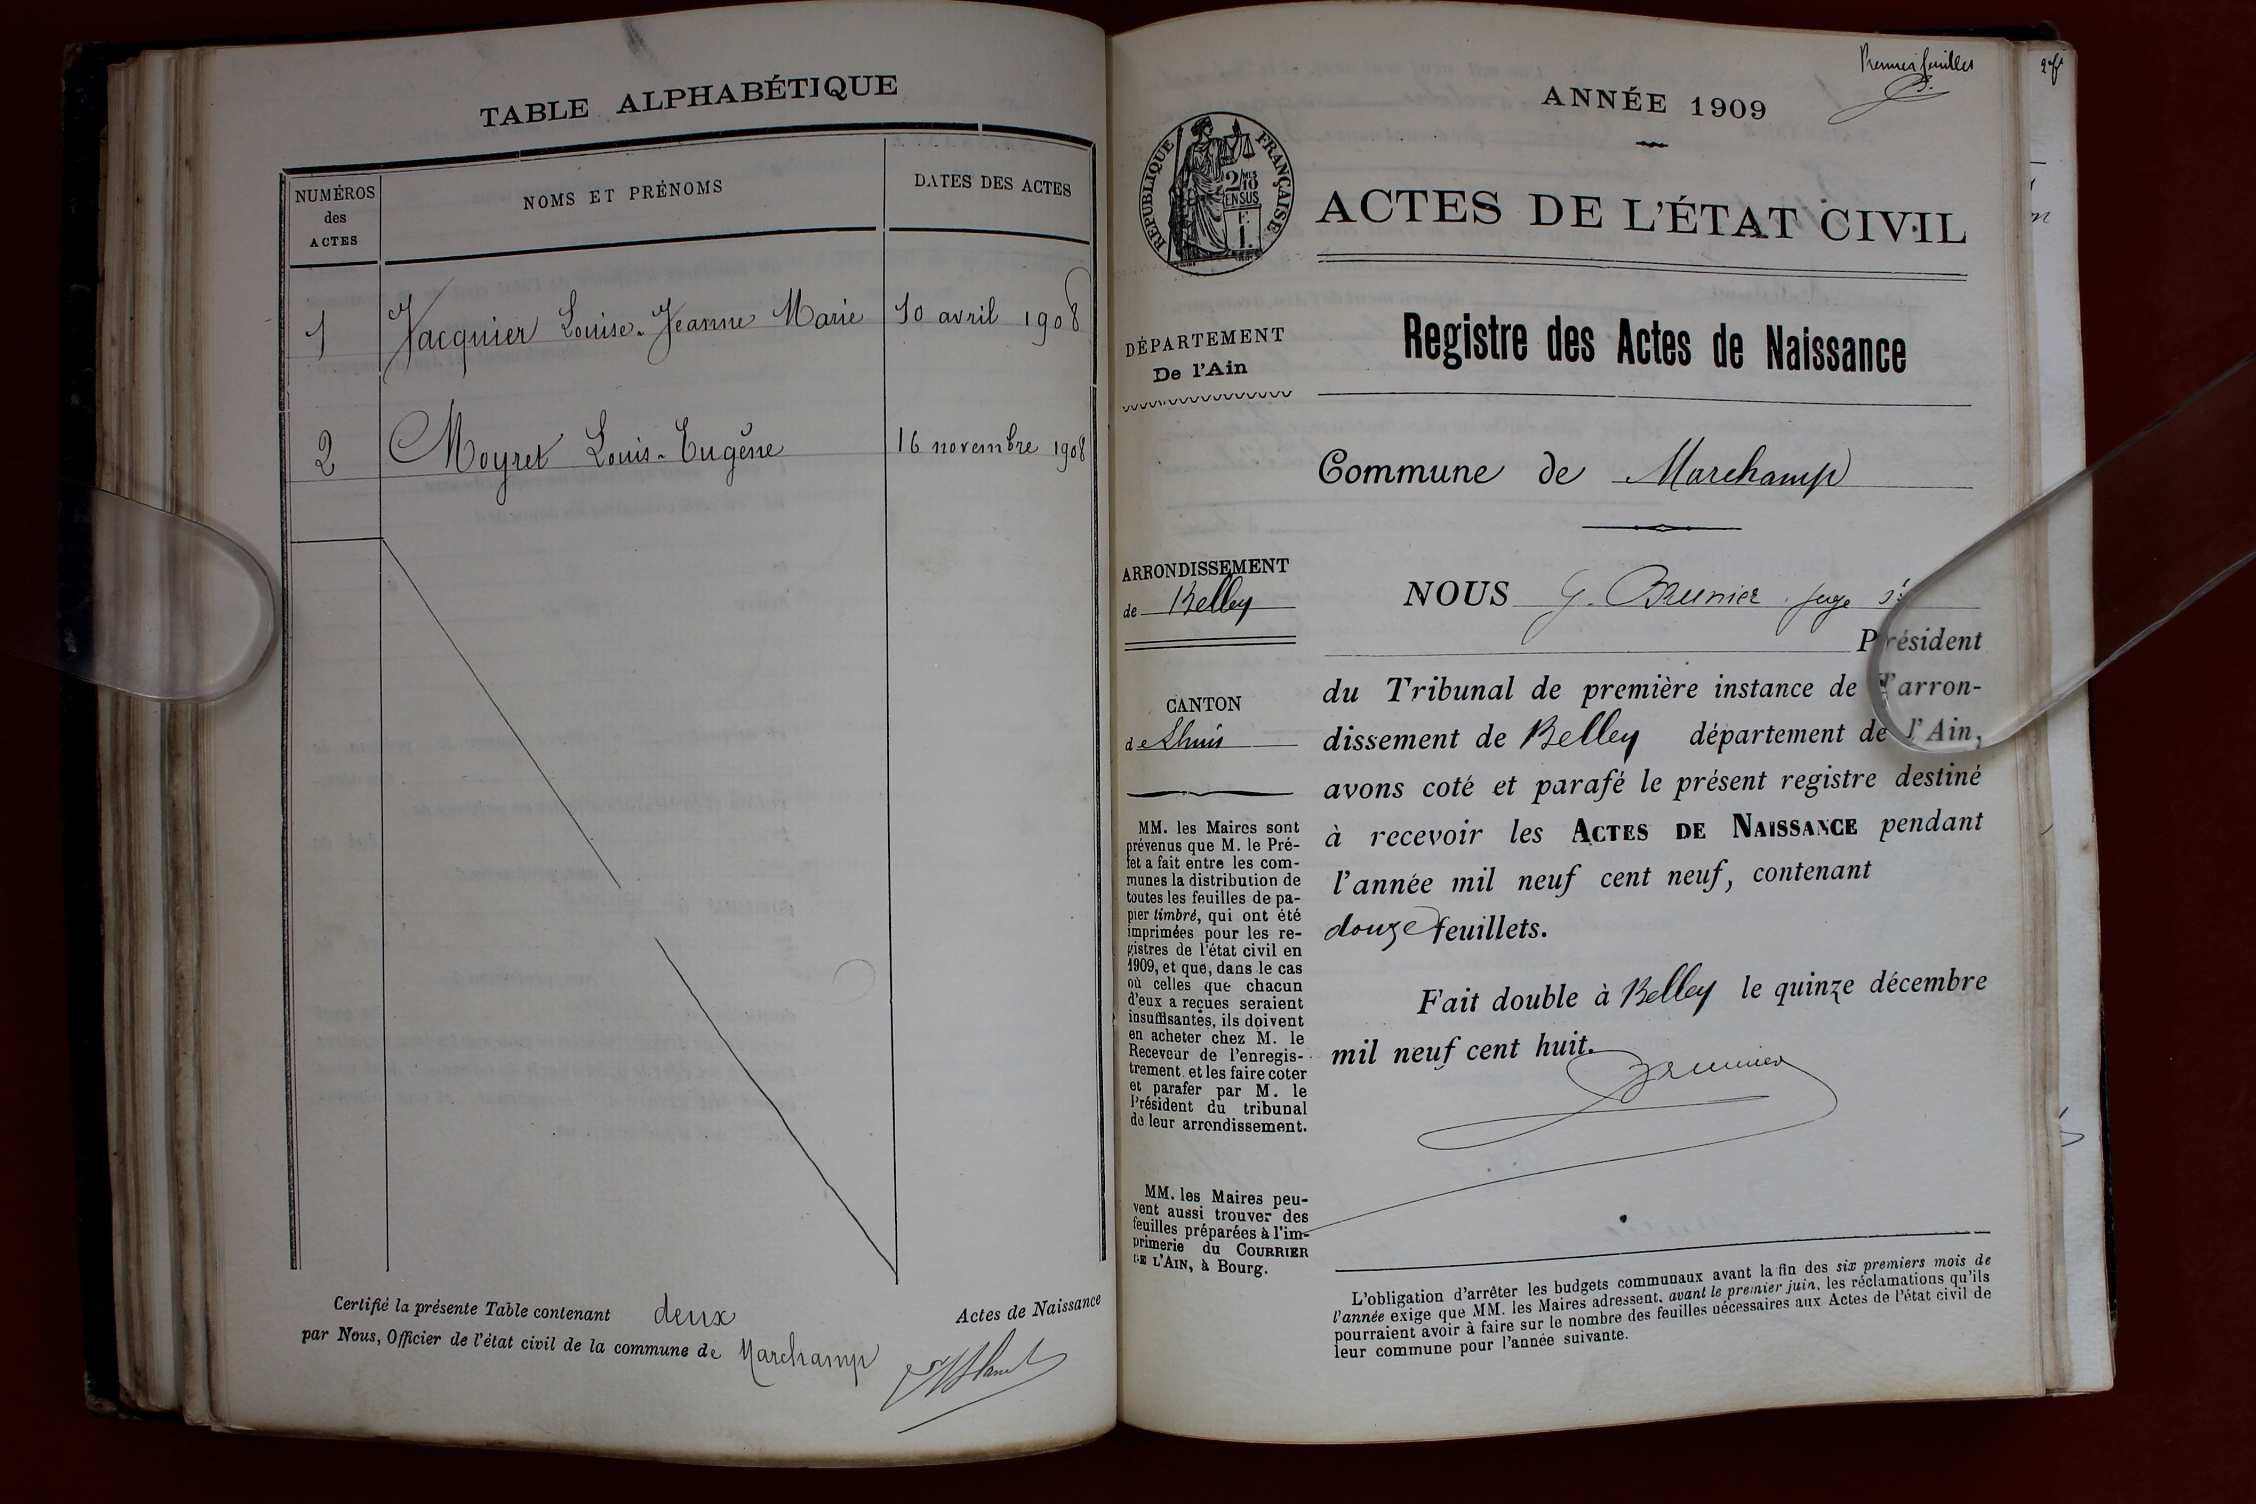 TABLE ALPHABÉTIQUE
NUMÉROS
des
ACTES
NOMS ET PRÉNOMS
DATES DES ACTES
1 Jacquier Louise-Jeanne Marie 10 avril 1908
2 Moyret Louis-Eugène 16 novembre 1908
Certifié la présente Table contenant deux Actes de Naissance
par Nous, Officier de l'état civil de la commune de Marchamp
Premier feuillet
2e f
ANNÉE 1909
RÉPUBLIQUE FRANÇAISE
2/10
EN SUS
F.
1.
ACTES DE L'ÉTAT CIVIL
DÉPARTEMENT
De l'Ain
Registre des Actes de Naissance
Commune de Marchamp
ARRONDISSEMENT
de Belley
CANTON
de Lhuis
MM. les Maires sont
prévenus que M. le Pré-
fet a fait entre les com-
munes la distribution de
toutes les feuilles de pa-
pier timbré, qui ont été
imprimées pour les re-
gistres de l'état civil en
1909, et que, dans le cas
où celles que chacun
d'eux a reçues seraient
insuffisantes, ils doivent
en acheter chez M. le
Receveur de l'enregis-
trement et les faire coter
et parafer par M. le
Président du tribunal
de leur arrondissement.
MM. les Maires peu-
vent aussi trouver des
feuilles préparées à l'im-
primerie du COURRIER
DE L'AIN, à Bourg.
NOUS G. Brunier juge
Président
du Tribunal de première instance de l'arron-
dissement de Belley département de l'Ain,
avons coté et parafé le présent registre destiné
à recevoir les ACTES DE NAISSANCE pendant
l'année mil neuf cent neuf, contenant
douze feuillets.
Fait double à Belley le quinze décembre
mil neuf cent huit.
Brunier
L'obligation d'arrêter les budgets communaux avant la fin des six premiers mois de
l'année exige que MM. les Maires adressent, avant le premier juin, les réclamations qu'ils
pourraient avoir à faire sur le nombre des feuilles nécessaires aux Actes de l'état civil de
leur commune pour l'année suivante.